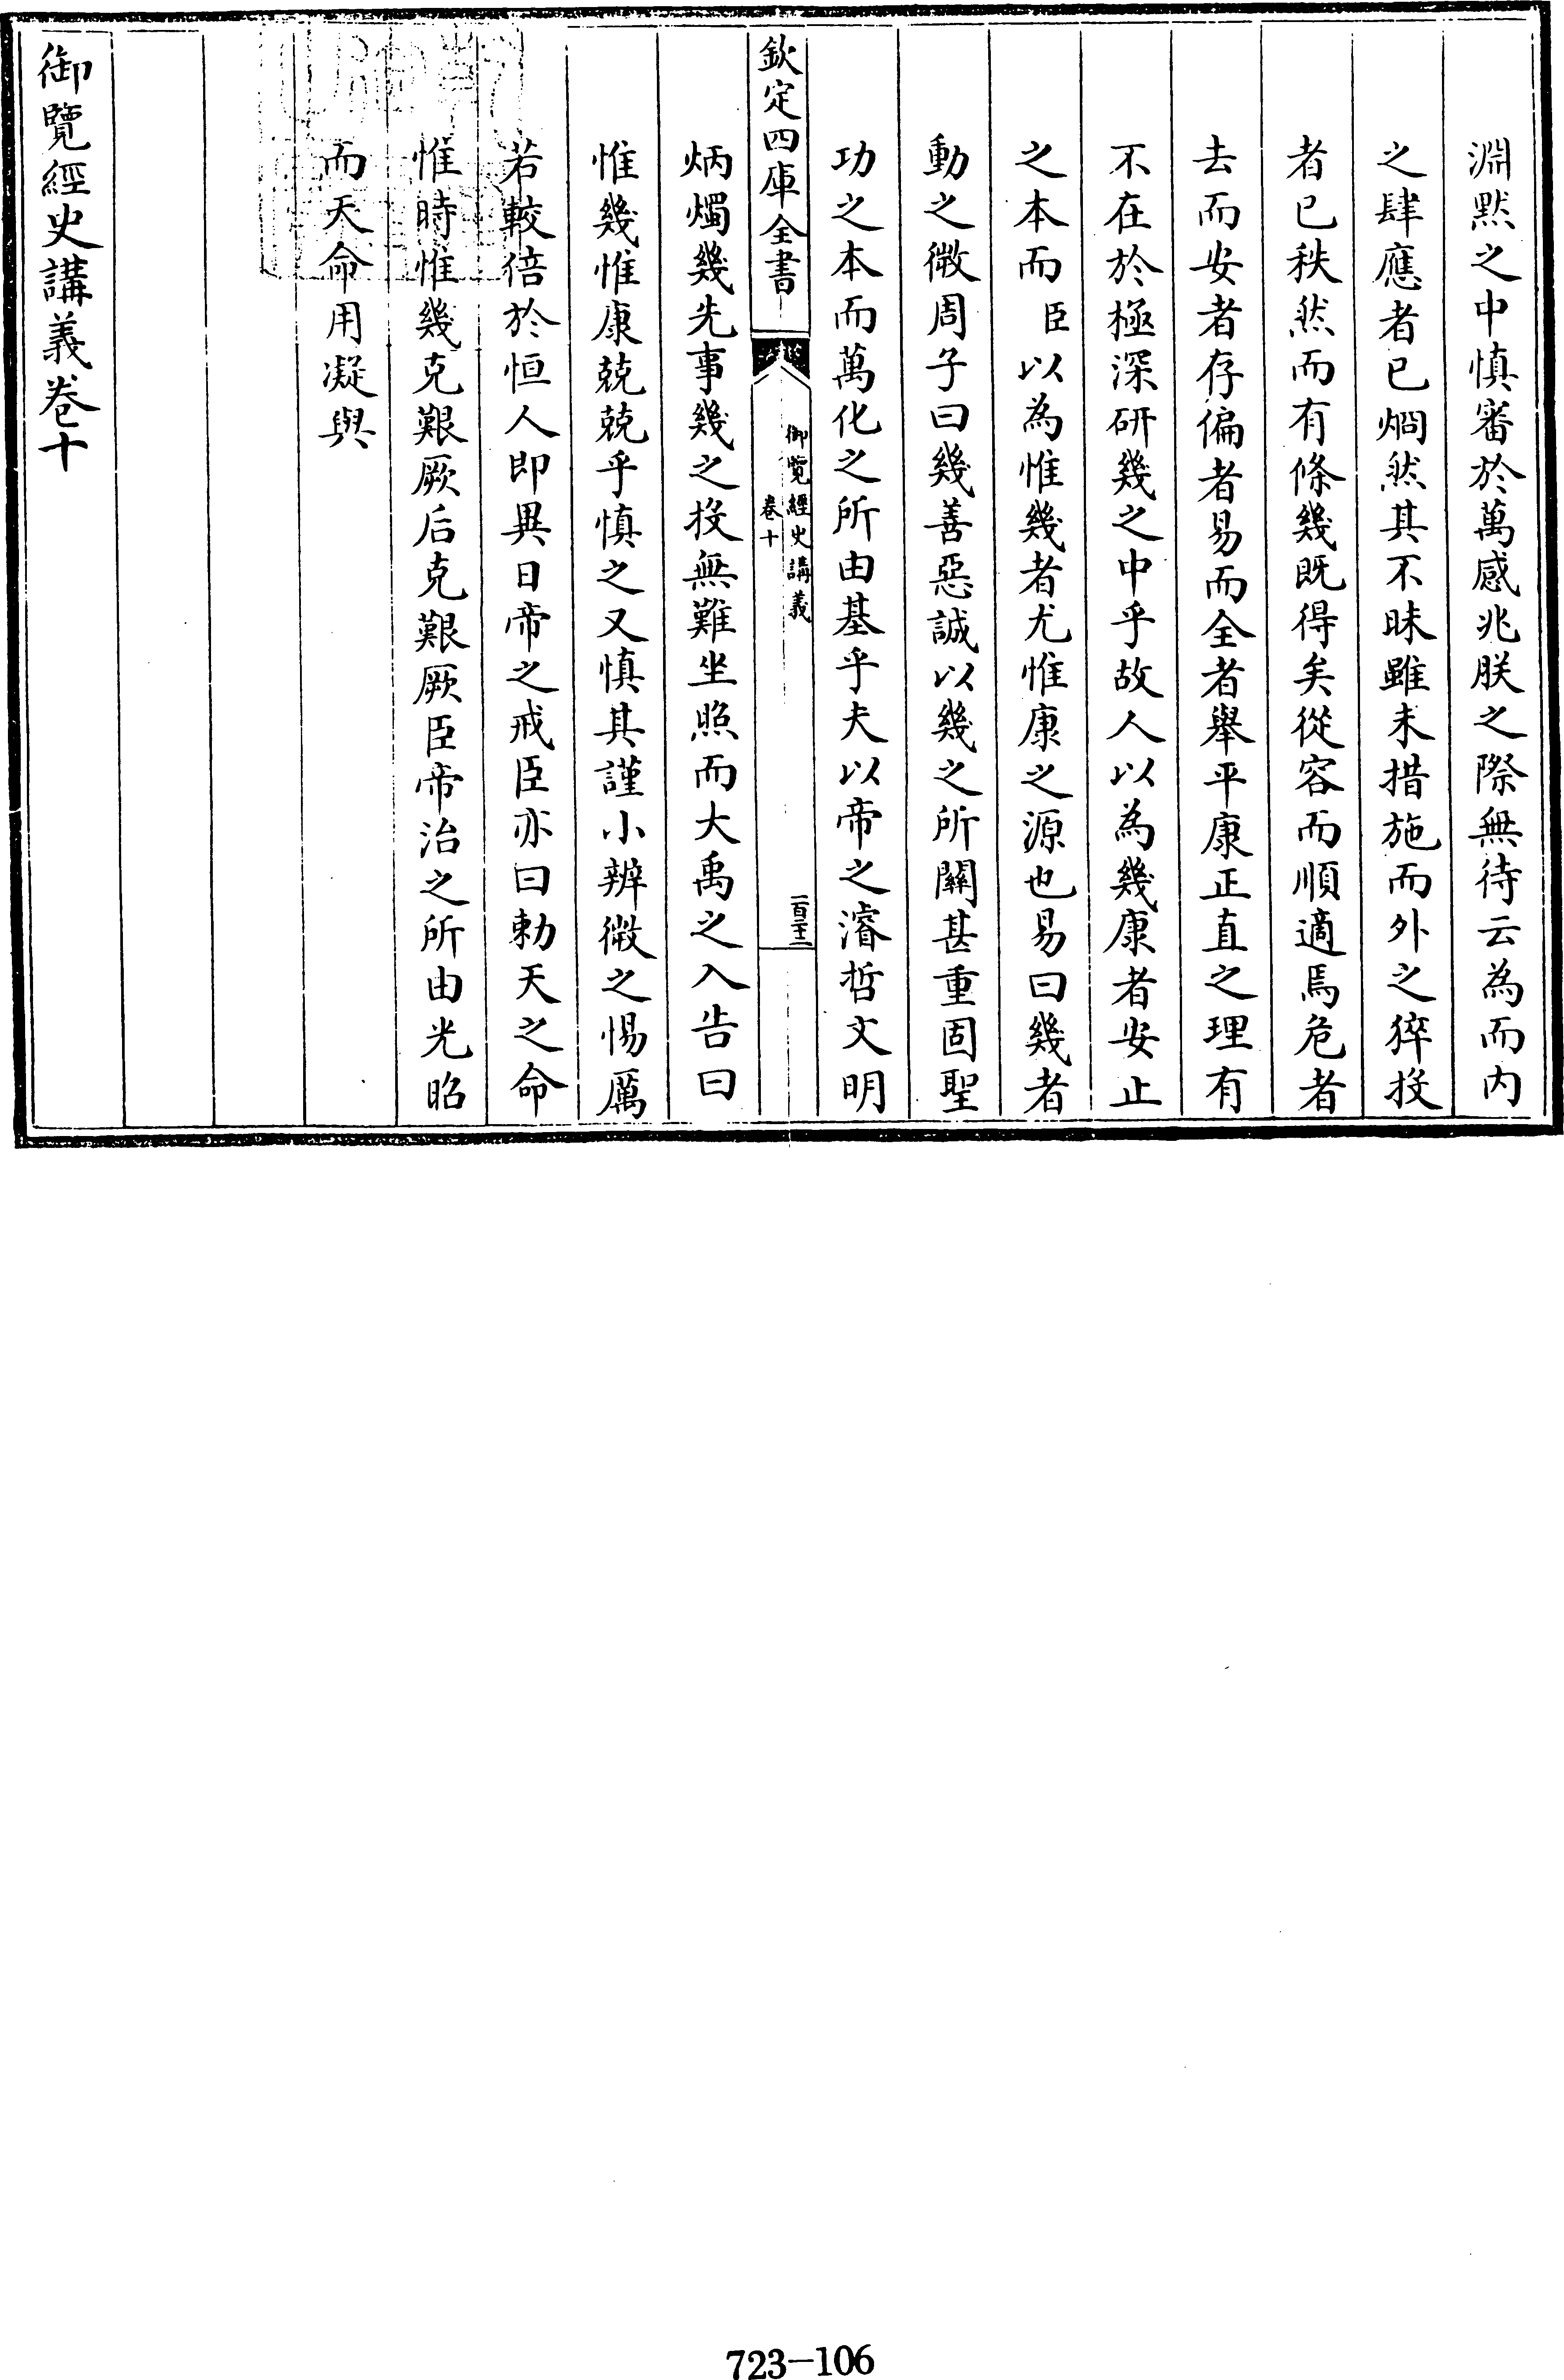 淵黙之中慎審於萬感兆朕之際無待云為而内
之肆應者已烱然其不昧雖未措施而外之猝投
者已秩然而有條幾既得矣從容而順適焉危者
去而安者存偏者易而全者舉平康正直之理有
不在於極深研幾之中乎故人以為幾康者安止
之本而臣以為惟幾者尤惟康之源也易曰幾者
動之微周子曰幾善惡誠以幾之所關甚重固聖
功之本而萬化之所由基乎夫以帝之濬哲文明
欽定四庫全書
御覽經史講義
卷十
炳燭幾先事幾之投無難坐照而大禹之入告曰
惟幾惟康兢兢乎慎之又慎其謹小辨微之惕厲
若較倍於恒人即異日帝之戒臣亦曰勅天之命
惟時惟幾克艱厥后克艱厥臣帝治之所由光昭
而天命用凝與
御覽經史講義卷十
723-106